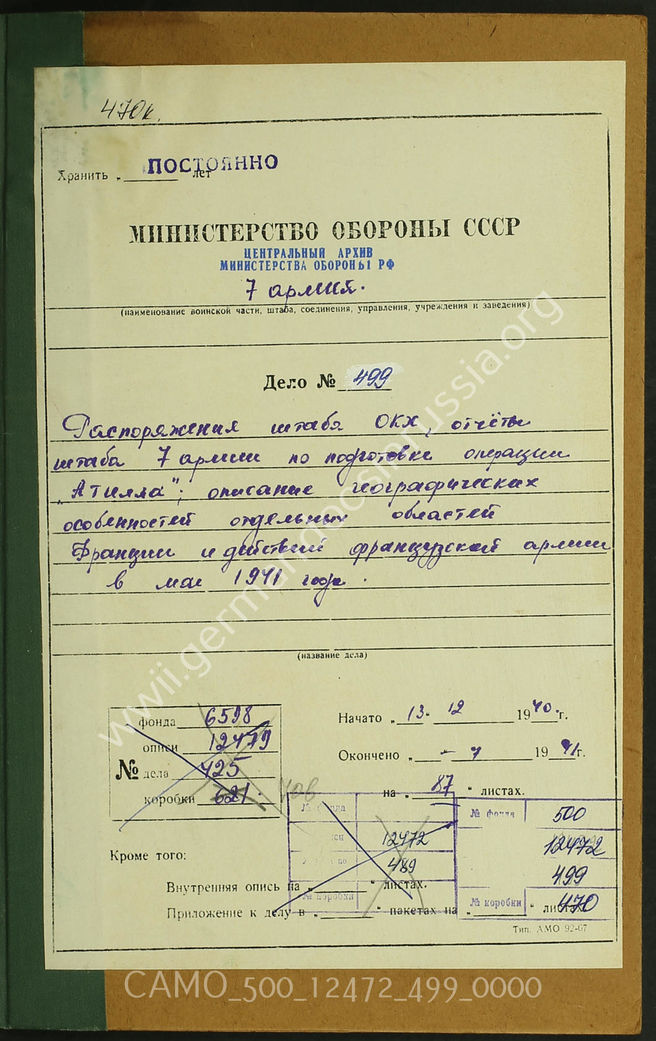 470к.
Хранить „ ПОСТОЯННО лет
МИНИСТЕРСТВО ОБОРОНЫ СССР
ЦЕНТРАЛЬНЫЙ АРХИВ
МИНИСТЕРСТВА ОБОРОНЫ РФ
7 армия.
(наименование воинской части, штаба, соединения, управления, учреждения и заведения)
Дело № 499
Распоряжения штаба ОКХ, отчёты
штаба 7 армии по подготовке операции
„Атилла"; описание географических
особенностей отдельных областей
Франции и действий французской армии
в мае 1941 года.
(название дела)
№
фонда 6598
описи 12479
дела 425
коробки 621
Начато „ 13 - 12 1940 г.
Окончено „ - 7 1941 г.
на „ 87 " листах.
№ фонда
12472
489
№ коробки
№ фонда 500
12472
499
№ коробки 470
Кроме того:
Внутренняя опись на „ " листах.
Приложение к делу в „ " пакетах на „ " ли
Тип. АМО 92-67
wwii.germandocsinrussia.org
CAMO_500_12472_499_0000